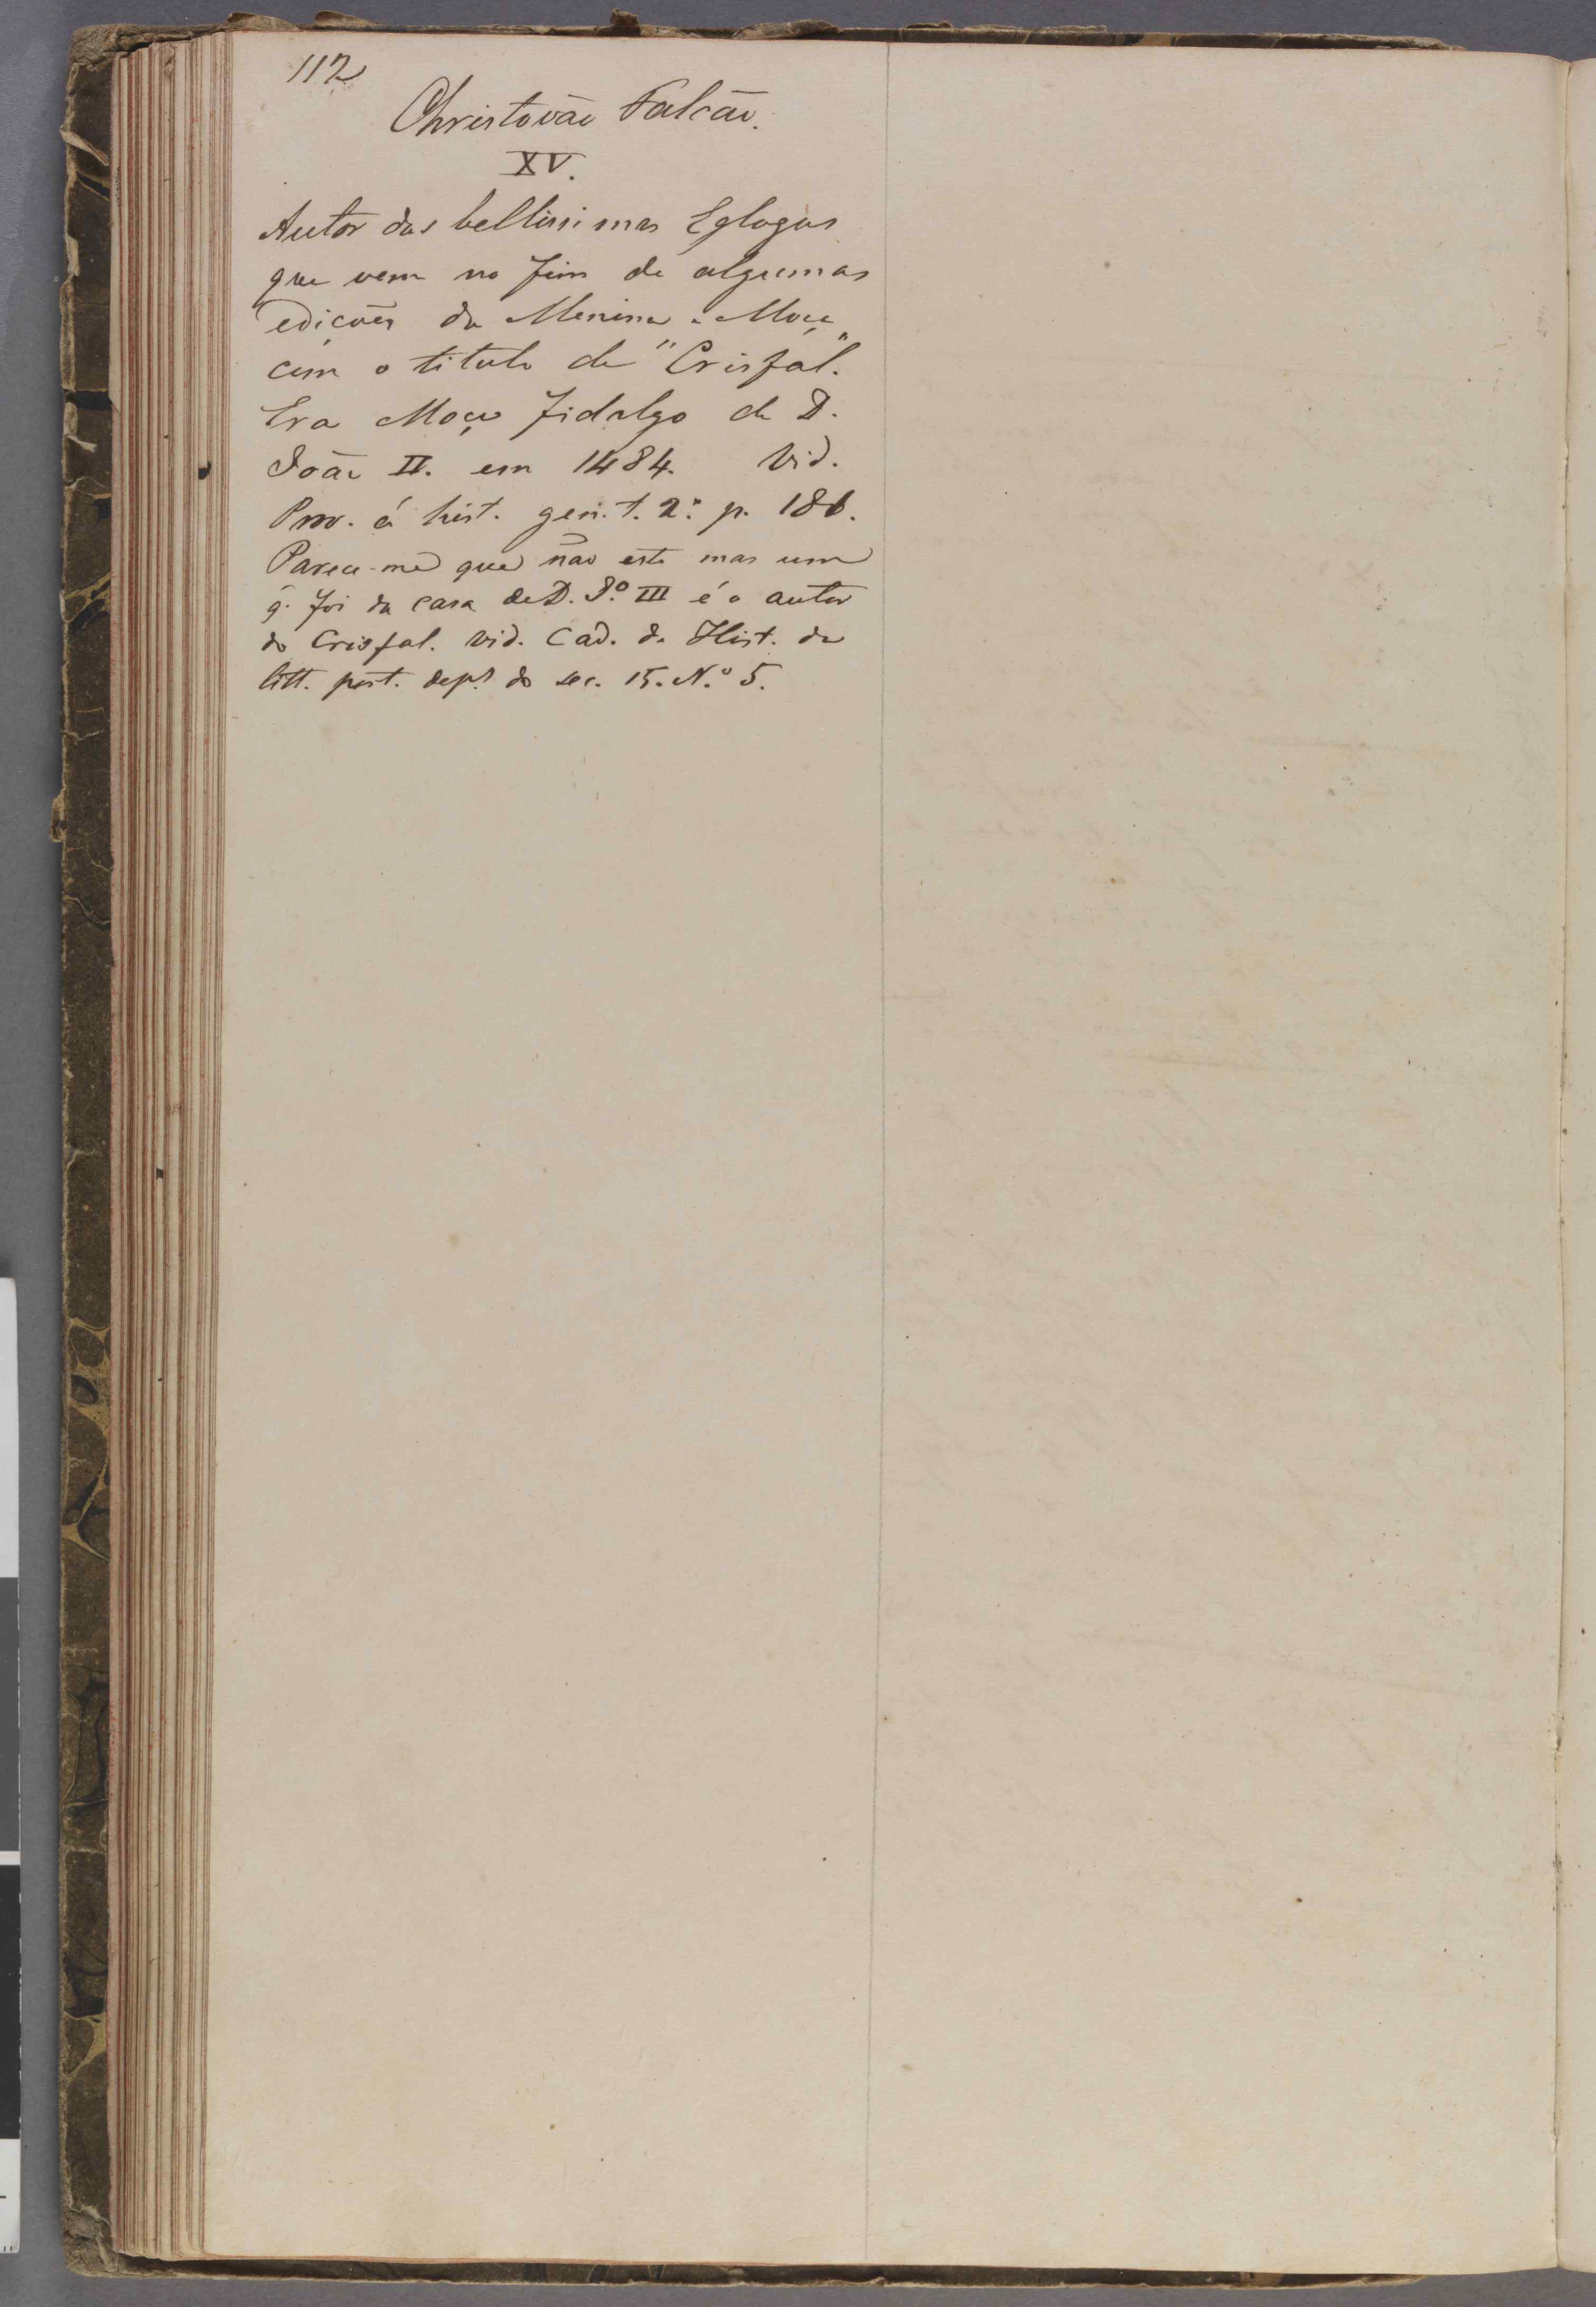 112
Christovão Falcão.
XV.
Autor das bellissimas Eglogas
que vem no fim de algumas
edições da Menina e Moça
com o titulo de "Crisfal".
Era Moço fidalgo de D.
João II. em 1484. Vid.
Prov. á hist. gen. t. 2.º p. 186.
Parece-me que não este mas um
q. foi da casa de D. J.º III é o autor
do Crisfal. Vid. Cad. de Hist. da
litt. port. dep.s do sec. 15. N.º 5.